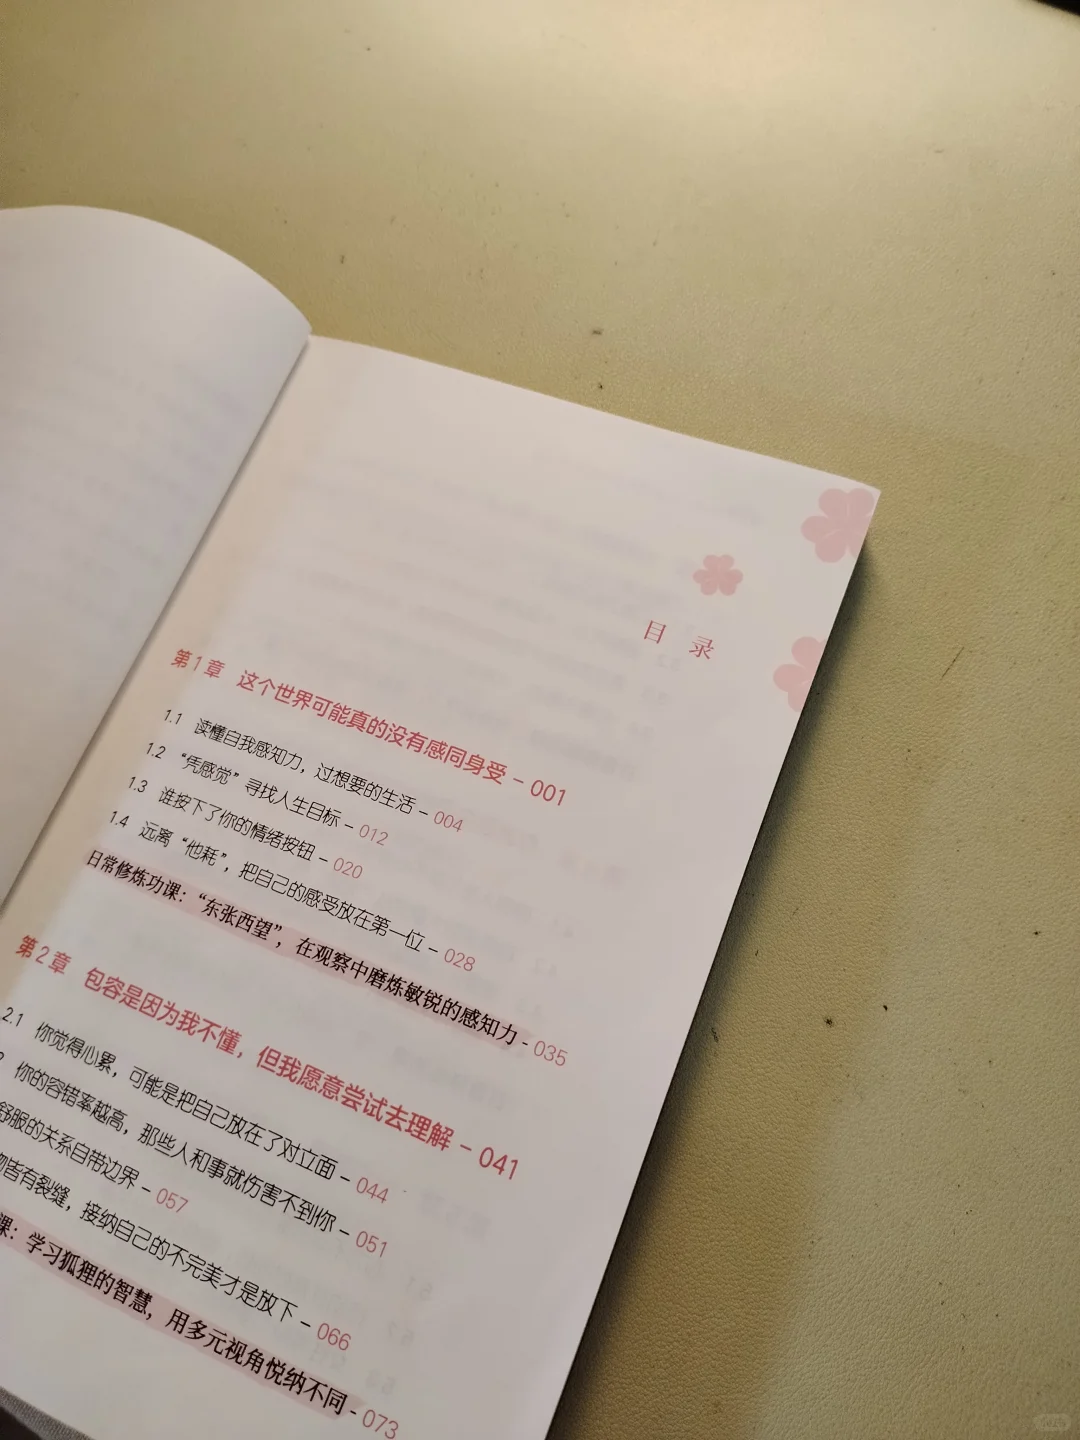 目 录
第1章 这个世界可能真的没有感同身受 – 001
1.1 读懂自我感知力，过想要的生活 – 004
1.2 “凭感觉”寻找人生目标 – 012
1.3 谁按下了你的情绪按钮 – 020
1.4 远离“他耗”，把自己的感受放在第一位 – 028
日常修炼功课：“东张西望”，在观察中磨炼敏锐的感知力 - 035
第2章 包容是因为我不懂，但我愿意尝试去理解 – 041
2.1 你觉得心累，可能是把自己放在了对立面 – 044
你的容错率越高，那些人和事就伤害不到你 – 051
舒服的关系自带边界 – 057
皆有裂缝，接纳自己的不完美才是放下 – 066
课：学习狐狸的智慧，用多元视角悦纳不同 - 073